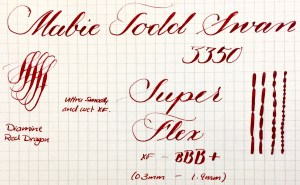 Mabie Todd Swan
3350
ultra smooth
and wet XF.
Super
Flex
Diamine
Red Dragon
XF - BBB+
(0.3mm - 1.9mm)